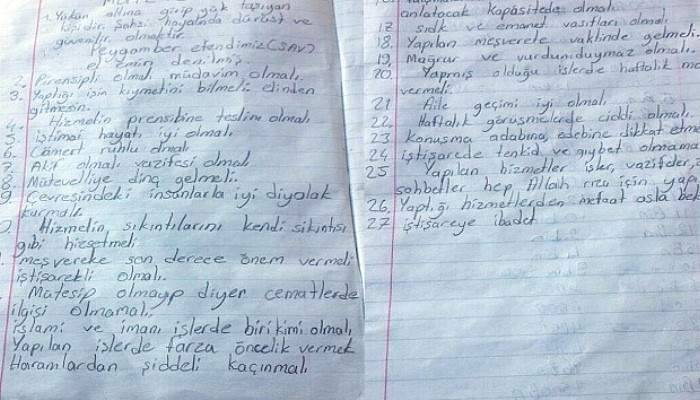 1. Yükün altına girip yük taşıyan
kişidir. Şahsi hayatında dürüst ve
güvenilir olmaktır.
Peygamber efendimiz (SAV)
Emin denilmiş.
2. Pirensipli olmalı müdavim olmalı.
3. Yaptığı işin kıymetini bilmeli elinden
gitmesin.
4. Hizmetin prensibine teslim olmalı
5. iştimai hayatı iyi olmalı
6. Cömert ruhlu olmalı
7. Aktif olmalı vazifesi olmalı
8. Mütevelliye dinç gelmeli.
9 Çevresindeki insanlarla iyi diyolak
kurmalı.
0. Hizmetin, sıkıntılarını kendi sıkıntısı
gibi hissetmeli
meşvereke son derece önem vermeli
iştişarekli olmalı.
Mutesip olmayıp diyer cematlerde
ilgisi olmamalı.
islami ve imani işlerde birikimi olmalı
Yapılan işlerde farza öncelik vermek
Haramlardan şiddeli kaçınmalı
anlatacak kapasitede olmalı
17 sıdk ve emanet vasıfları olmalı
18. Yapılan meşverete vaklinde gelmeli.
19. Mağrur ve vurdumduymaz olmalı.
20. Yapmış olduğu işlerde haftalık
vermeli.
21 Aile geçimi iyi olmalı
22. Haftalık görüşmelerde ciddi olmalı.
23 Konuşma adabına, edebine dikkat
24 iştişarede tenkid ve gıybet olmama
25 Yapılan hizmetler işler, vazifeler
sohbetler hep Allah rızası için
26. Yaptığı hizmetlerden mefaat asla
27 iştişareye ibadet